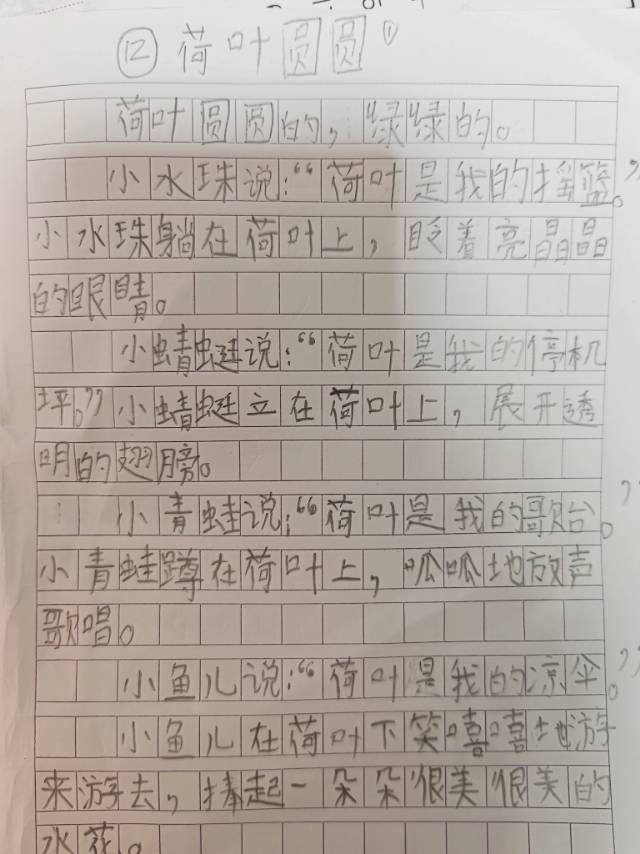 ⑫ 荷叶圆圆①
荷叶圆圆的，绿绿的。
小水珠说：“荷叶是我的摇篮。”
小水珠躺在荷叶上，眨着亮晶晶
的眼睛。
小蜻蜓说：“荷叶是我的停机
坪。”小蜻蜓立在荷叶上，展开透
明的翅膀。
小青蛙说：“荷叶是我的歌台。”
小青蛙蹲在荷叶上，呱呱地放声
歌唱。
小鱼儿说：“荷叶是我的凉伞。”
小鱼儿在荷叶下笑嘻嘻地游
来游去，捧起一朵朵很美很美的
水花。